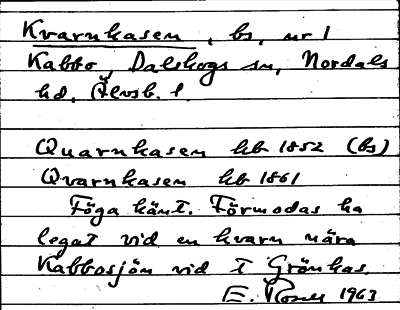 Kvarnkasen, bs, nr 1
Kabbo, Dalskogs sn, Nordals
hd, Älvsb. l.
Quarnkasen hb 1852 (bs)
Qvarnkasen hb 1861
Föga känt. Förmodas ha
legat vid en kvarn nära
Kabbosjön vid t Grönkas.
E. 1963